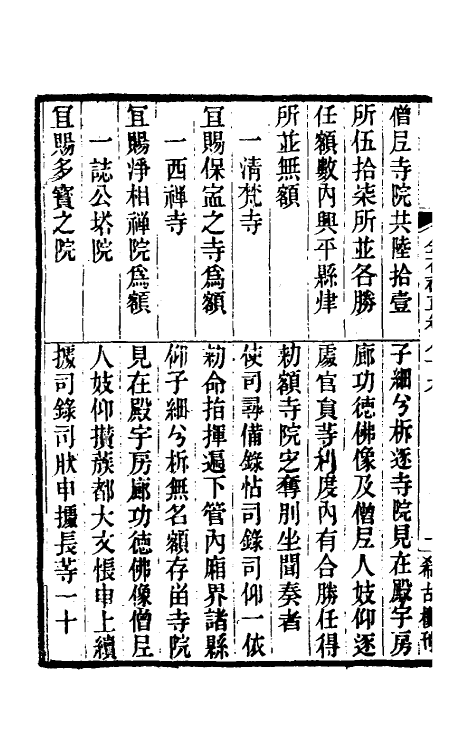 僧尼寺院共陸拾壹
所伍拾柒所並各勝
任額數內興平縣肂
所並無額
一清梵寺
宜賜保寍之寺爲額
一西禅寺
宜賜淨相禅院爲額
一誌公塔院
宜賜多寳之院
子細分析逐寺院見在殿宇房
廊功徳佛像及僧尼人妓仰逐
處官員等利度內有合勝任得
勅額寺院㝎奪別坐聞奏者
使司尋備錄帖司錄司仰一依
勅命指揮遍下管內厢界諸縣
仰子細分析無名額存畱寺院
見在殿宇房廊功徳佛像僧尼
人妓仰攢蔟都大文帳申上續
據司錄司狀申據長等一十